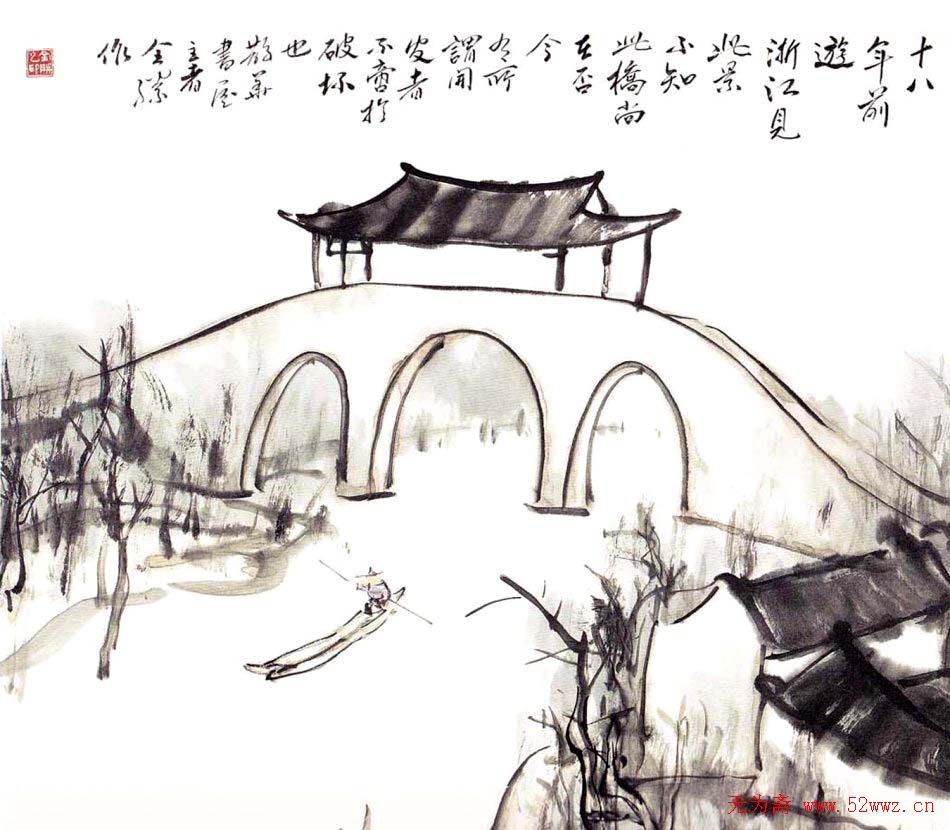 十八
年前
遊
浙江見
此景
不知
此橋尚
在否
今
有所
謂開
發者
不啻於
破坏
也
華
書屋
主者
作
无为斋 www.52wwz.cn